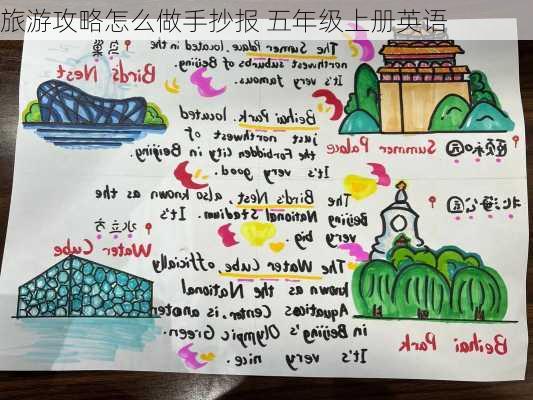 旅游攻略怎么做手抄报 五年级上册英语
The Sumer Palace, located in the
northwest suburbs of Beijing.
It's very famous.
颐和园
Summer Palace
鸟巢
Bird's Nest
Beihai Park, located
just northwest of
the Forbidden City in Beijing.
It's very good.
北海公园
Beihai Park
The Bird's Nest, also known as the
Beijing National Stadium. It's
very big.
水立方
Water Cube
The Water Cube, officially
known as the National
Aquatics Center, is
in Beijing's Olympic Green.
It's very nice.